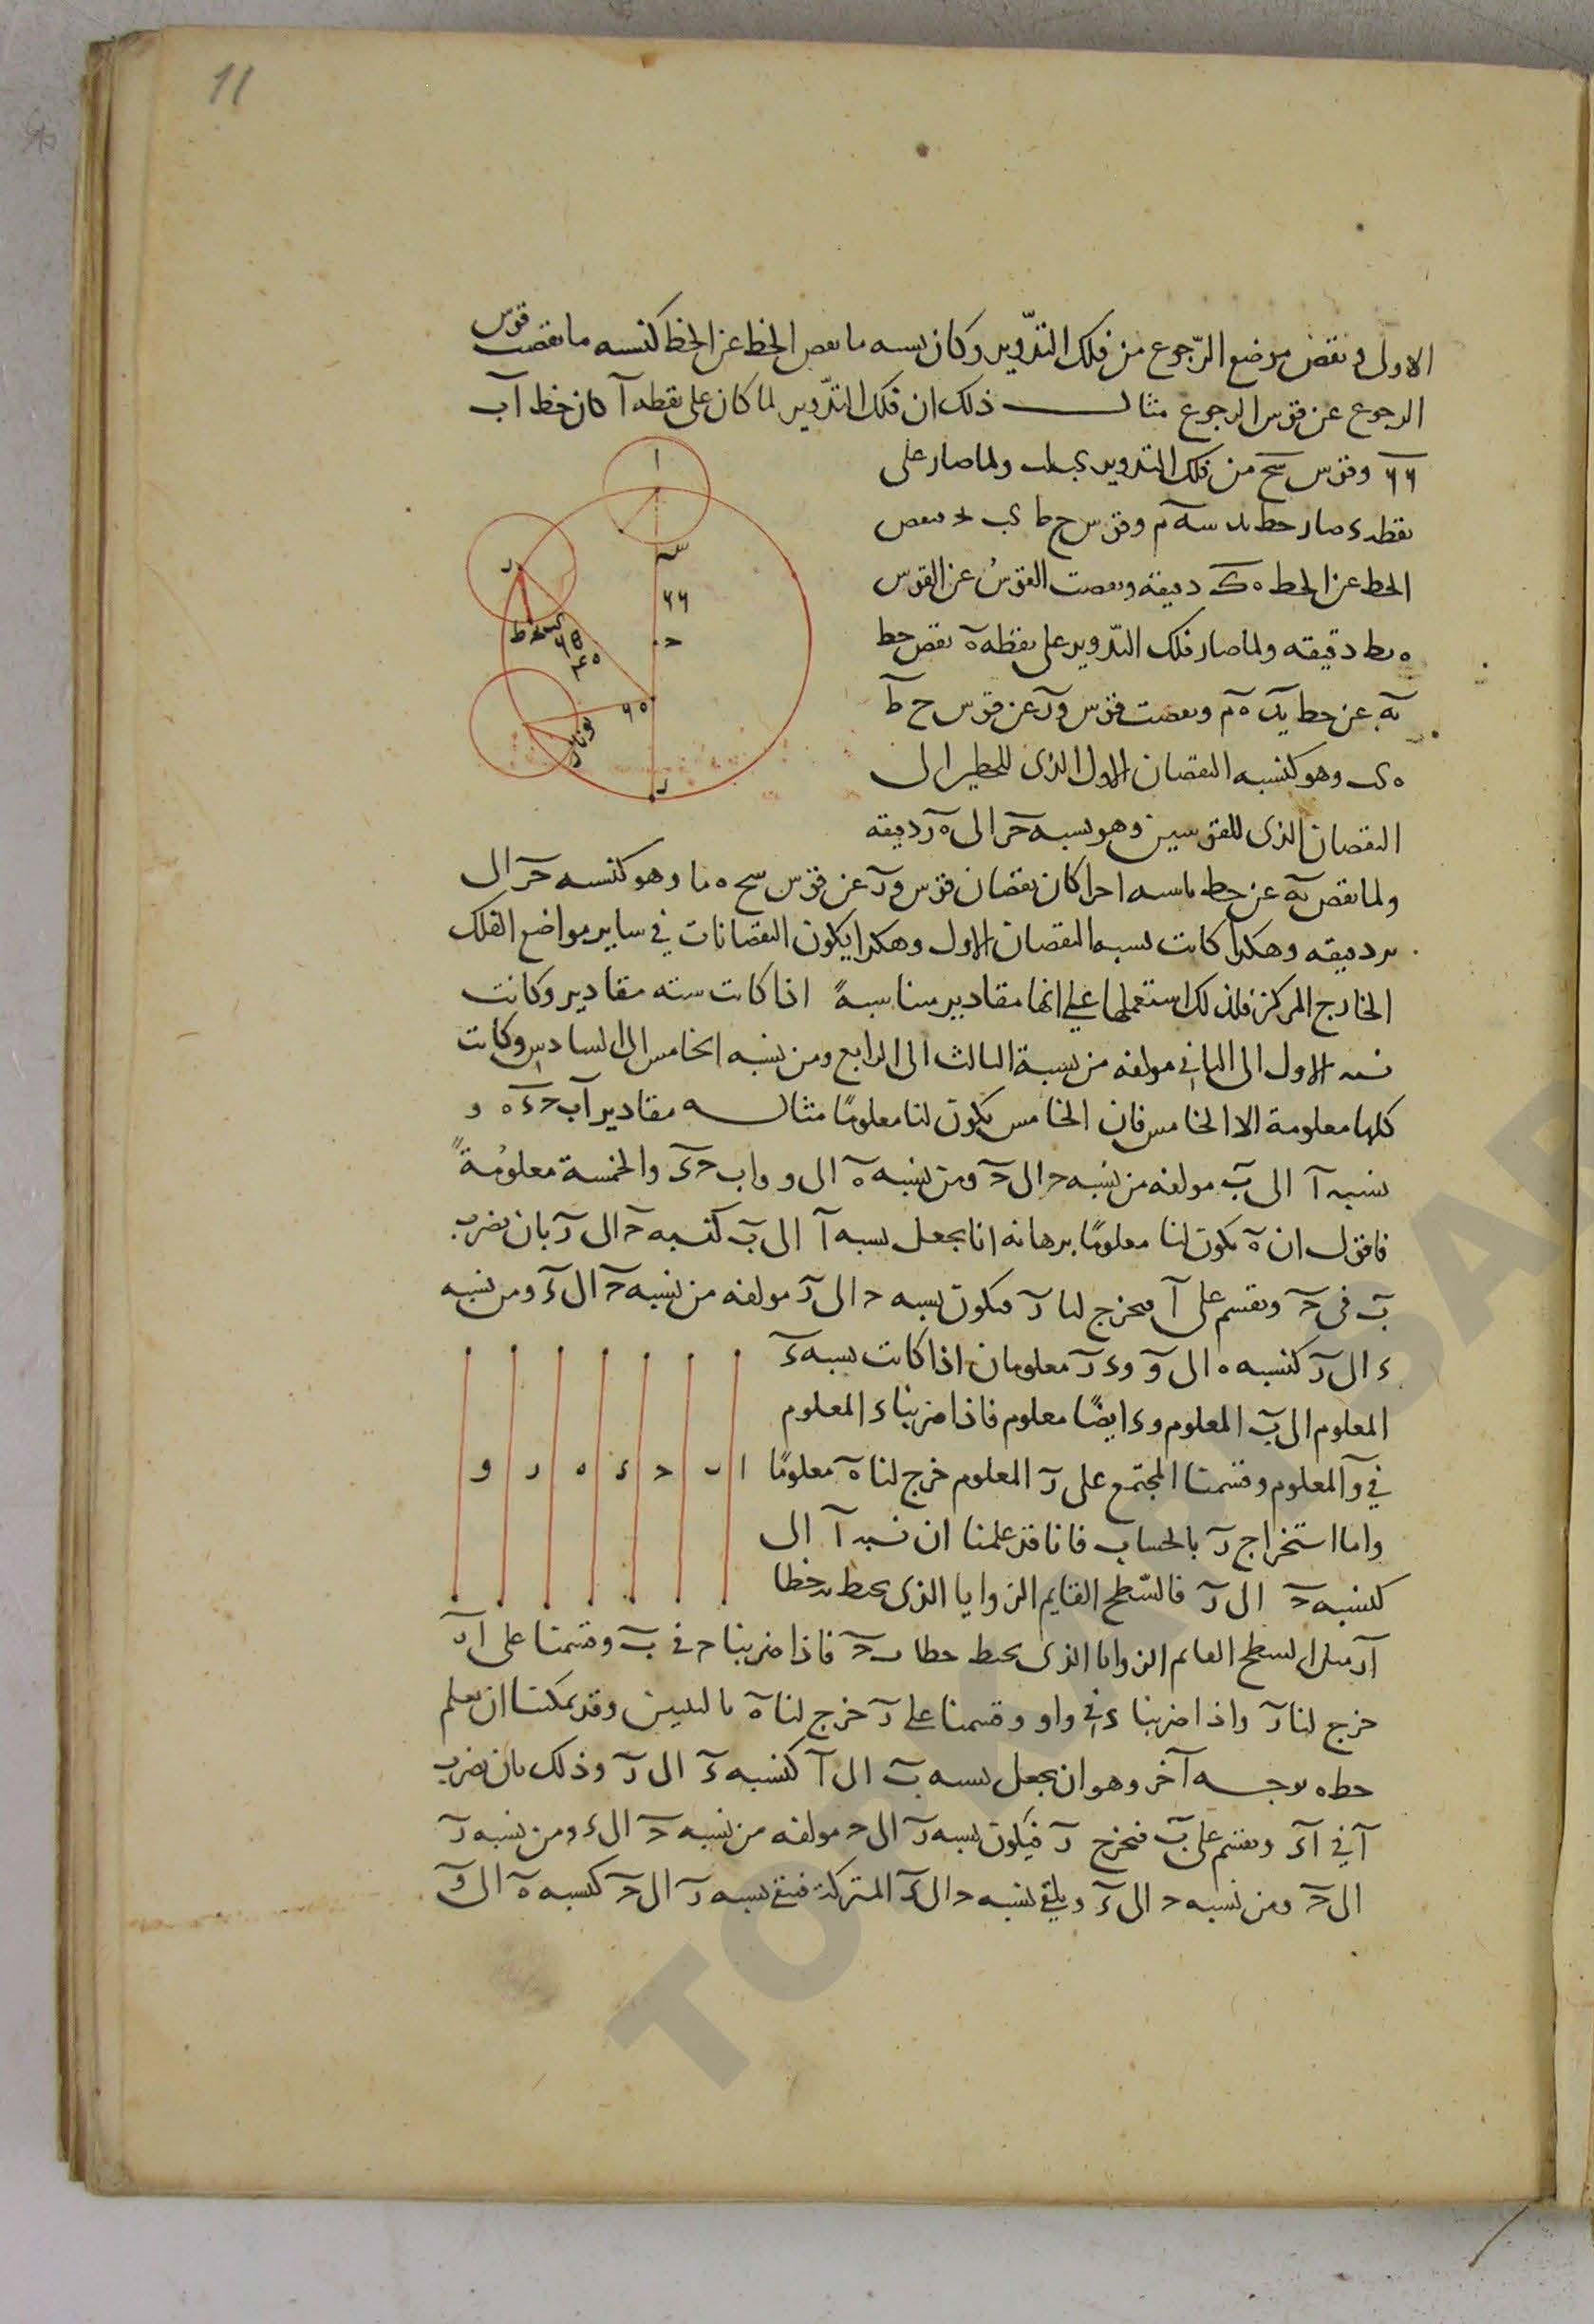 11
الاول و نقض موضع الرّجوع من فلك التدّوير وكان نسبه ما نقص الخط عن الخط كنسبه ما نقصت قوس
الرجوع عن قوس الرجوع مثالــ ذلك ان فلك التدّوير لما كان على نقطه آ كان خط آب
٦٦ وقوس سح من فلك التدوير ولما صار على
نقطه د صار خط سه م وقوس ح ط نقص
الخط عن الخط ه ك دقيقه ونقصت القوسُ عن القوس
ه يط دقيقه ولما صار فلك التدّوير على نقطه ه نقص خط
به عن خط ه م ونقصت قوس و ر عن قوس ح ط
وهو كنسبه النقصان الاول الذى للخطين الى
النقصان الذى للقوسين وهو نسبه حر الى ه ر دقيقه
ولما نقص به عن خط كان نقصان قوس و ر عن قوس سح ه ما وهو كنسبه حر الى
دقيقه وهكذا كانت نسبه النقصان الاول وهكذا يكون النقصانات في ساير مواضع الفلك
الخارج المركز فلذلك استعملها علي انها مقادير متناسبهً اذا كانت سته مقادير وكانت
نسبه الاول الى الثانى مولفه من نسبة الثالث الى الرابع ومن نسبه الخامس الى السادس وكانت
كلها معلومة الا الخامس فان الخامس يكون لنا معلومًا مثالــه مقادير آ ب ح ء ه و
نسبه آ الى ب مولفه من نسبه ح الى ء ومن نسبه ه الى و و ا ب ح ء و الخمسة معلوُمةً
فاقول ان ه يكون لنا معلومًا برهانه انا نجعل نسبه آ الى ب كنسبه ح الى ر بان نضرب
ب فى ح ونقسم على آ فيخرج لنا ر فيكون نسبه ح الى ر مولفه من نسبه ح الى ء ومن نسبه
ء الى ر كنسبه ه الى و و ء ر معلومان اذا كانت نسبه ء
المعلوم الى ب المعلوم و ء ايضًا معلوم فاذا ضربنا ء المعلوم
في و المعلوم وقسمنا المجتمع على ر المعلوم خرج لنا ه معلومًا
واما استخراج ر بالحساب فانا قد علمنا ان نسبه آ الى
كنسبه ح الى ر فالسّطح القايم الزوايا الذى يحيط به خطا
آ ر مثل السطح القايم الزوايا الذى يحيط خطا ب ح فاذا ضربنا ح في ب وقسمنا على آ
خرج لنا ر واذا ضربنا ء في واو وقسمنا على ر خرج لنا ه وقد يمكننا ان نعلم
خط ه بوجــه آخر وهو ان نجعل نسبه ب الى آ كنسبه ء الى ر وذلك بان نضرب
آ في ء ونقسم على ب فيخرج ر فيكون نسبه ر الى ح مولفه من نسبه ح الى ء ومن نسبه ر
الى ح ومن نسبه ح الى ء ويلقى نسبه ح الى ء المشتركة فيبقى نسبه ر الى ح كنسبه ه الى و
ا
٦٦
ح
ر
ر
٦٥
ا ب ح ء ه ر و
TOPKAPI SARAYI